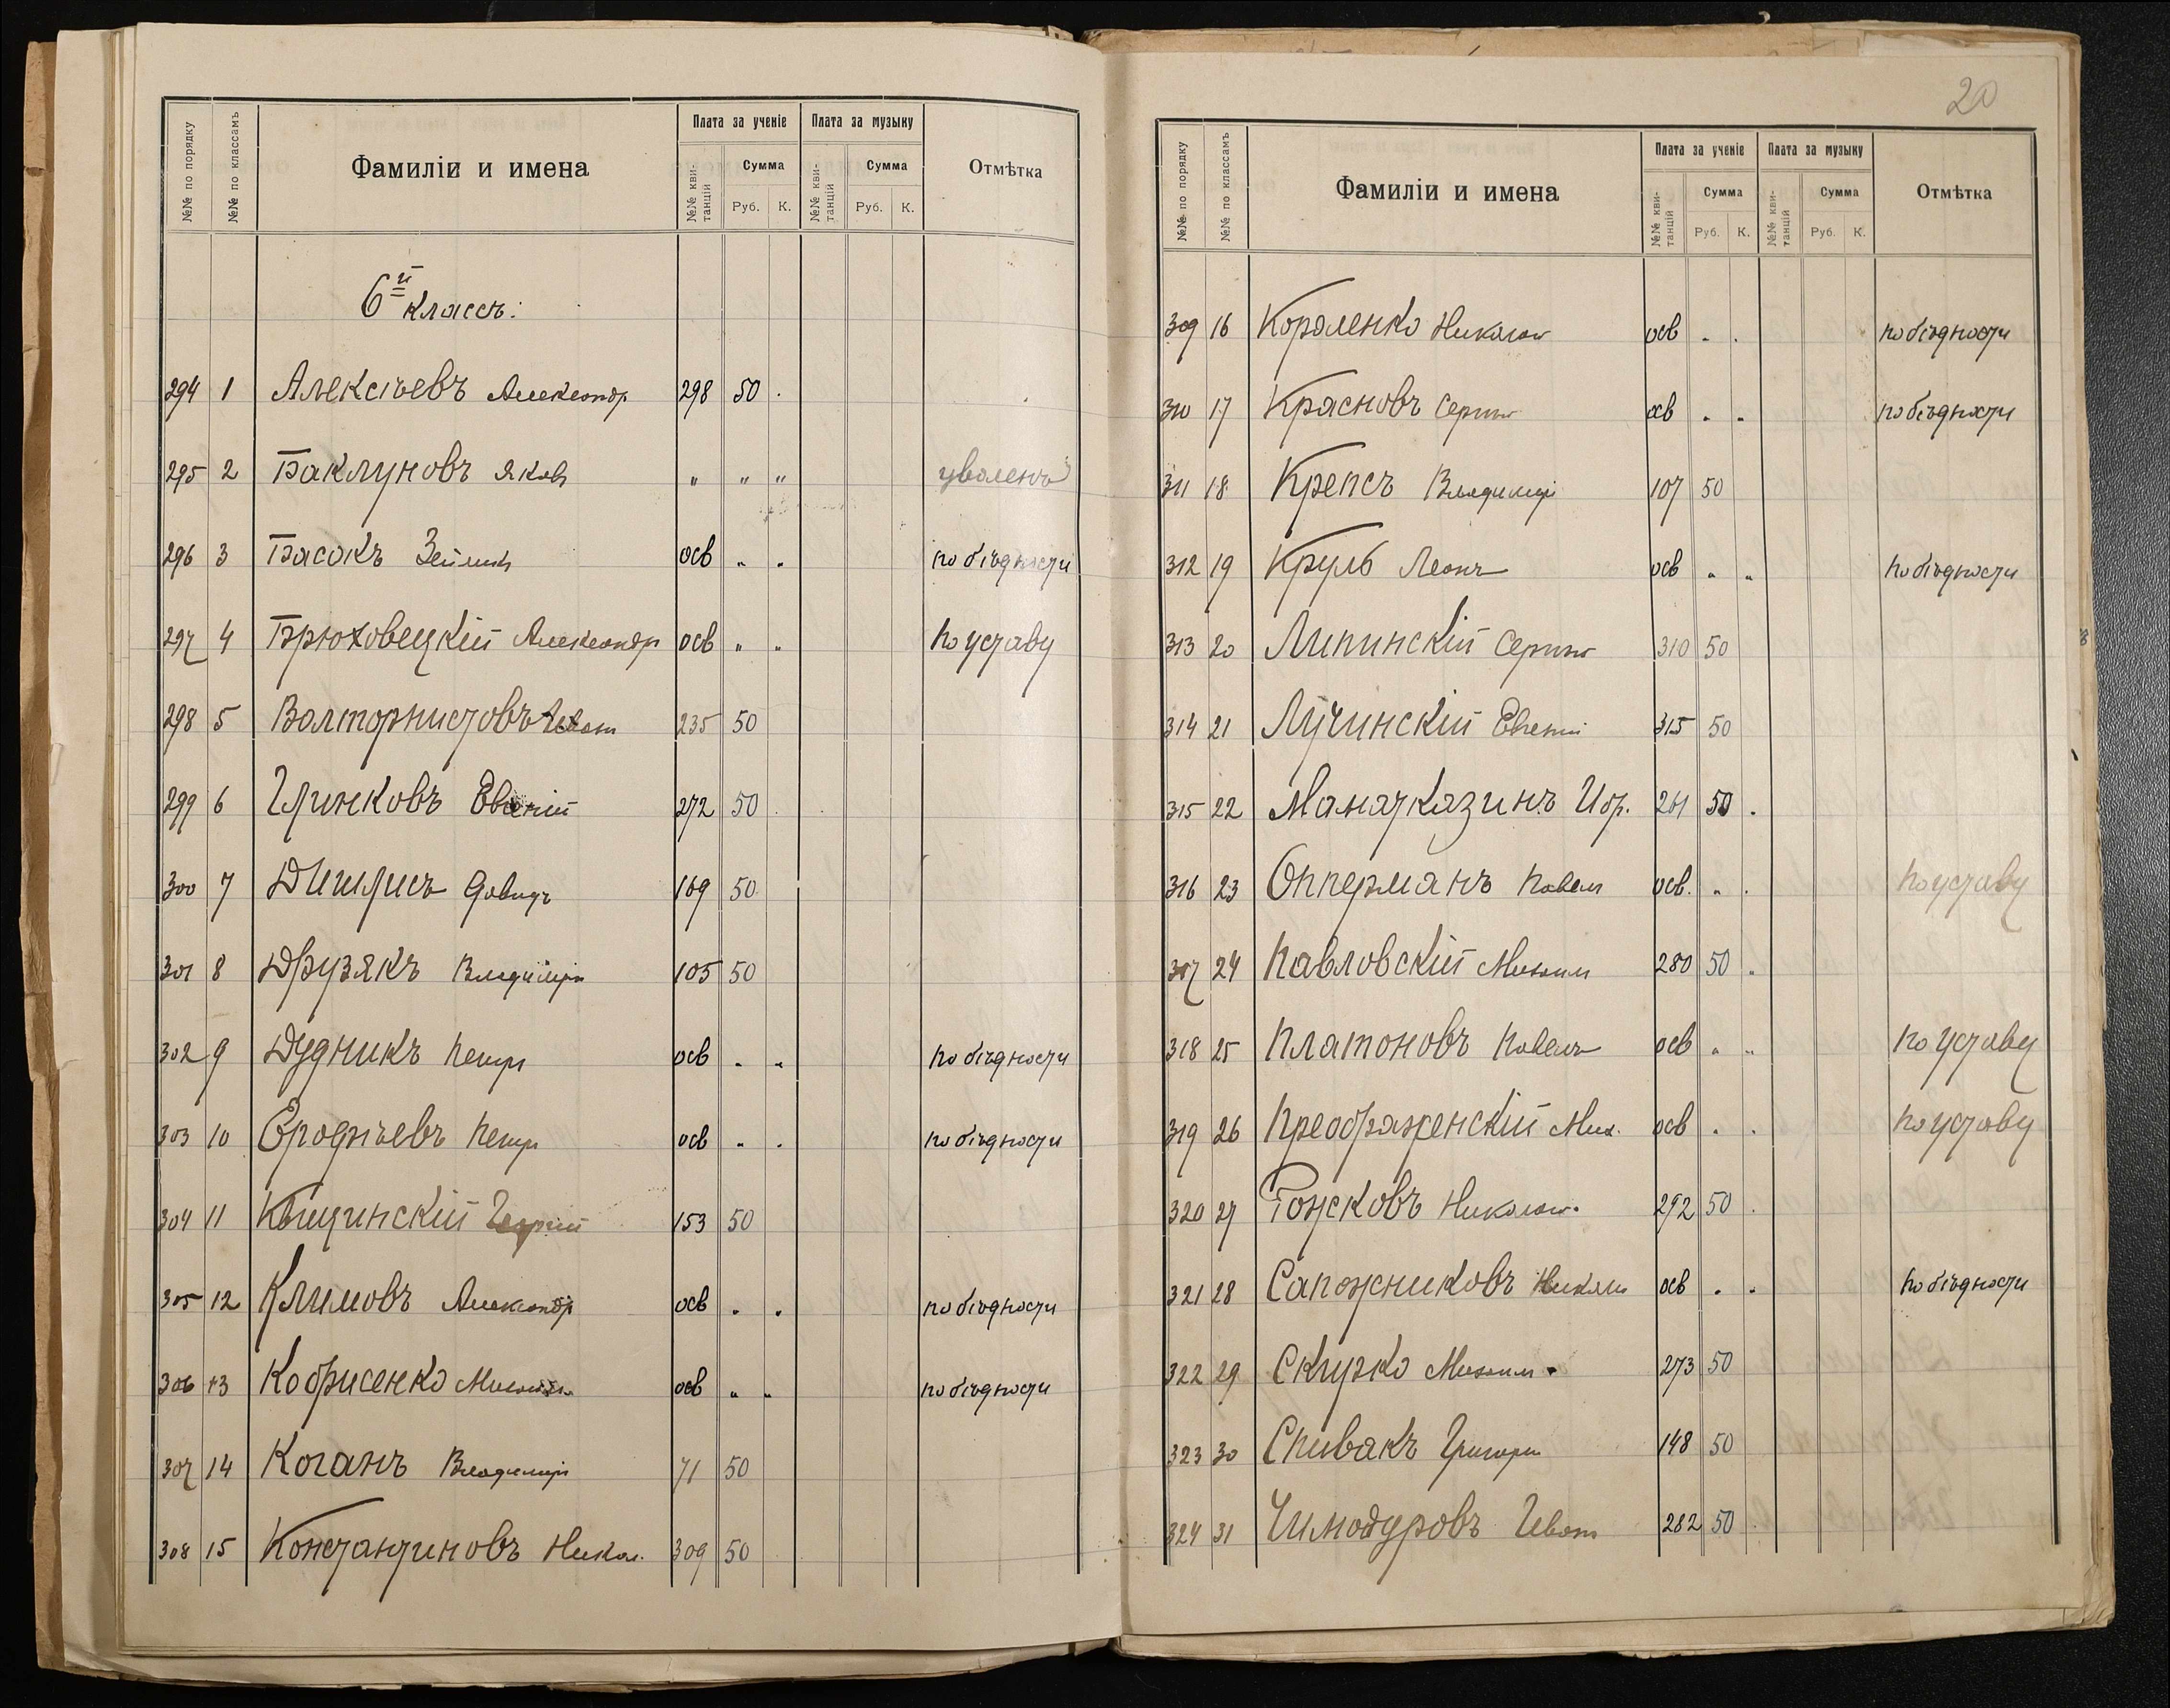 №№ по порядку №№ по классамъ Фамиліи и имена Плата за ученіе Плата за музыку Отмѣтка
№№ квитанцій Сумма №№ квитанцій Сумма
Руб. К. Руб. К.
6й классъ:
294 1 Алексѣевъ Александръ 298 50 .
295 2 Баклуновъ Яковъ " " " уволенъ
296 3 Басокъ осв " " по бѣдности
297 4 Брюховецкій Александръ осв " " по уставу
298 5 Валторнистовъ Иванъ 235 50
299 6 Глинковъ Евгеній 272 50
300 7 Давидъ 169 50
301 8 Друзякъ Владиміръ 105 50
302 9 Дудникъ Петръ осв " " по бѣдности
303 10 Ерофѣевъ Петръ осв " " по бѣдности
304 11 Квицинскій Георгій 153 50
305 12 Климовъ Александръ осв " " по бѣдности
306 13 Кобрисенко Михаилъ осв " " по бѣдности
307 14 Коганъ Владиміръ 71 50
308 15 Константиновъ Никол. 309 50
20
№№ по порядку №№ по классамъ Фамиліи и имена Плата за ученіе Плата за музыку Отмѣтка
№№ квитанцій Сумма №№ квитанцій Сумма
Руб. К. Руб. К.
309 16 Короленко Николай осв . . по бѣдности
310 17 Красновъ Сергѣй осв " " по бѣдности
311 18 Крепсъ Владиміръ 107 50
312 19 Круль Леонъ осв " " по бѣдности
313 20 Липинскій Сергѣй 310 50
314 21 Лучинскій Евгеній 315 50
315 22 Манатказинъ 50 .
316 23 Опперманъ Павелъ осв. " . по уставу
317 24 Павловскій Михаилъ 280 50 "
318 25 Платоновъ Павелъ осв " " по уставу
319 26 Преображенскій Мих. осв . . по уставу
320 27 Рожковъ Николай 292 50 .
321 28 Сапожниковъ Николай осв . . по бѣдности
322 29 Михаилъ 273 50
323 30 Спивакъ Григорій 148 50
324 31 Чимодуровъ Иванъ 282 50